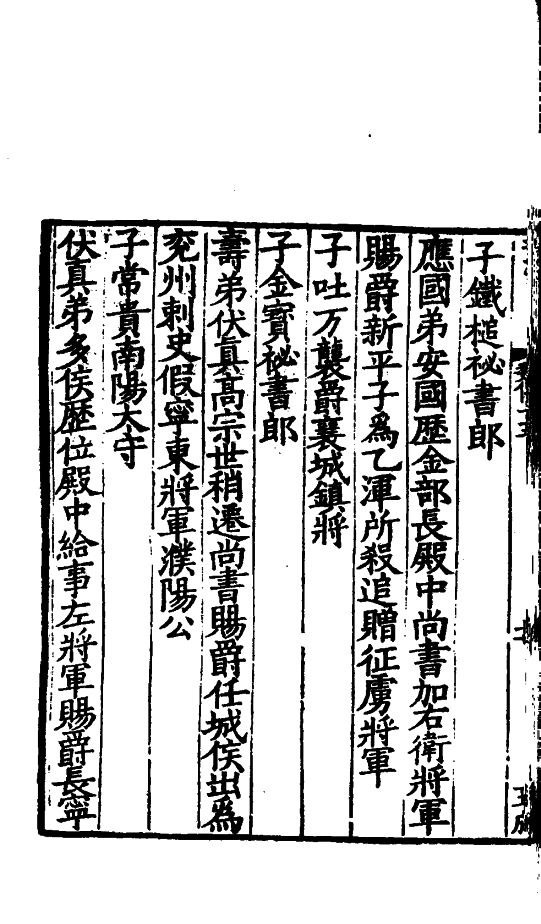 子鐵槌祕書郎
應國弟安國歷金部長殿中尚書加右衛將軍
賜爵新平子爲乙渾所殺追贈征虜將軍
子吐万襲爵襄城鎮將
子金寳祕書郎
壽弟伏真髙宗世稍遷尚書賜爵任城侯出爲
兖州刺史假寧東將軍濮陽公
子常貴南陽太守
伏真弟多侯歷位殿中給事左將軍賜爵長寧